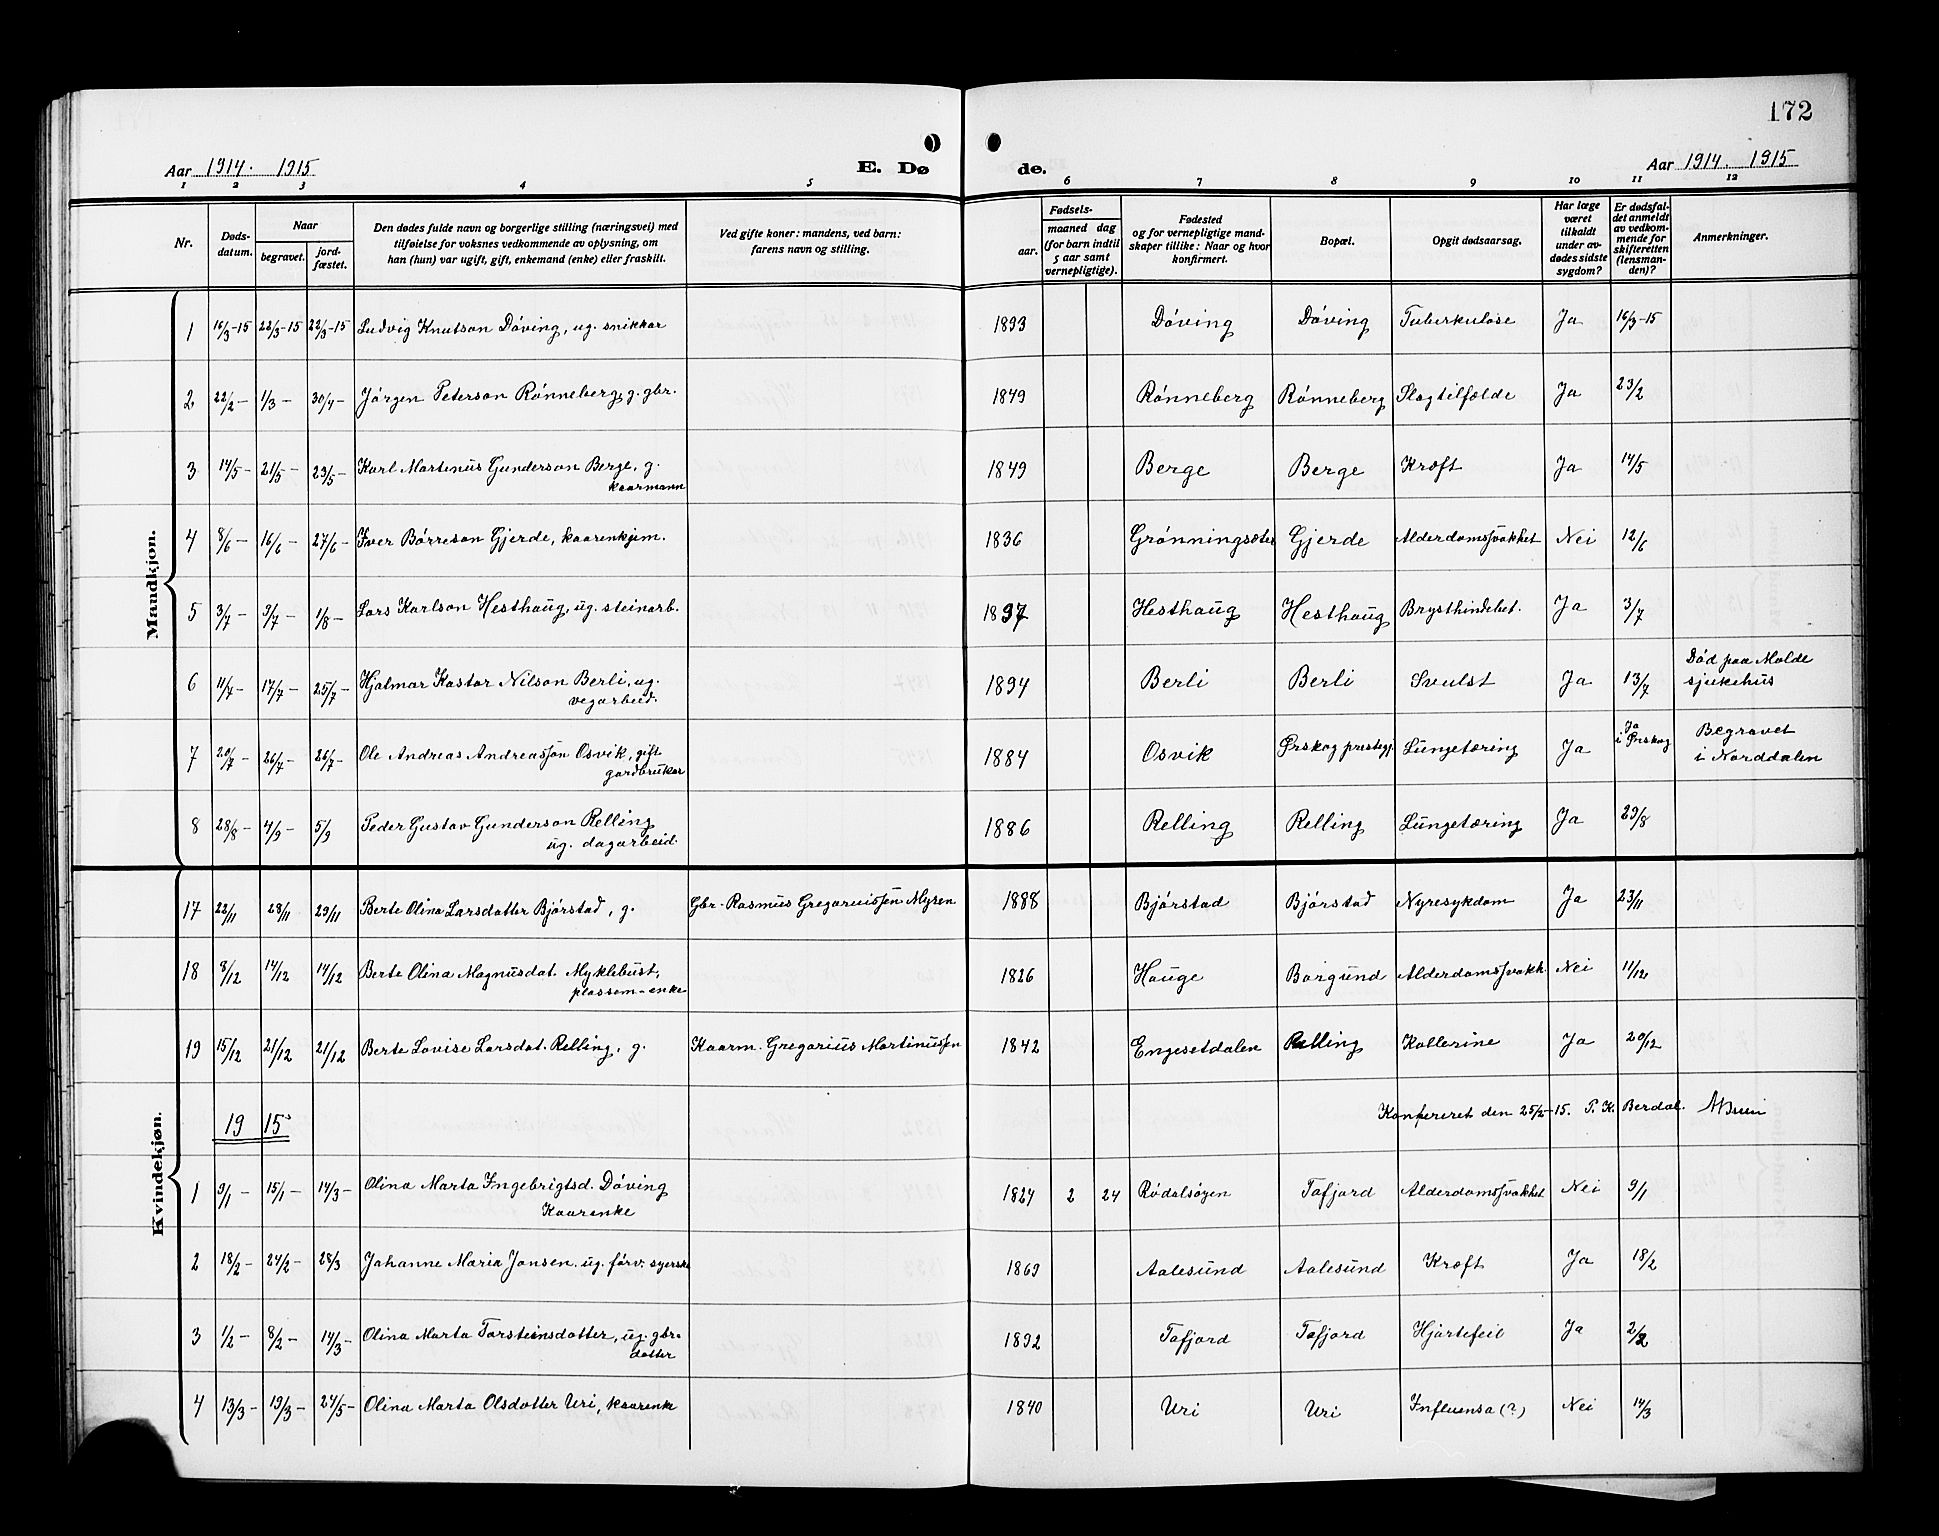 172
Aar 1914. 1915
E. Dø
de.
Aar 1914. 1915
1 2 3 4 5 6 7 8 9 10 11 12
Nr.
Døds-
datum.
Naar
begravet.
jord-
fæstet.
Den dødes fulde navn og borgerlige stilling (næringsvei) med
tilføielse for voksnes vedkommende av oplysning, om
han (hun) var ugift, gift, enkemand (enke) eller fraskilt.
Ved gifte koner: mandens, ved barn:
farens navn og stilling.
Fødsels-
aar.
maaned dag
(for barn indtil
5 aar samt
vernepligtige).
Fødested
og for vernepligtige mand-
skaper tillike: Naar og hvor
konfirmert.
Bopæl.
Opgit dødsaarsag.
Har læge
været
tilkaldt
under av-
dødes sidste
sygdom?
Er dødsfal-
det anmeldt
av vedkom-
mende for
skifteretten
(lensman-
den)?
Anmerkninger.
Mandkjøn.
1 16/3-15 22/3-15 22/3-15 Ludvig Knutson Døving, ug. snikkar 1893 Døving Døving Tuberkulose Ja 16/3-15
2 22/2- 1/3- 30/4- Jørgen Peterson Rønneberg, g. gbr. 1849 Rønneberg Rønneberg Slagtilfælde Ja 23/2
3 14/5- 21/5- 23/5- Karl Martinus Gunderson Berge, g.
kaarmann 1849 Berge Berge Kræft Ja 14/5
4 8/6- 16/6- 27/6- Iver Børreson Gjerde, kaarenkjem. 1836 Grønningsæter Gjerde Alderdomssvakhet Nei 12/6
5 3/7- 9/7- 1/8- Lars Karlson Hesthaug, ug. steinarb. 1897 Hesthaug Hesthaug Brysthindebet. Ja 3/7
6 11/7- 17/7- 25/7- Hjalmar Kastor Nilson Berli, ug.
vegarbeid. 1894 Berli Berli Svulst Ja 13/7 Død paa Molde
sjukehus
7 20/7- 26/7- 26/7- Ole Andreas Andreassøn Osvik, gift
gardbrukar 1884 Osvik Ørskog prestegj. Lungetæring Ja Ja
i Ørskog Begravet
i Norddalen
8 28/8- 4/9- 5/9 Peder Gustav Gunderson Relling
ug. dagarbeid. 1886 Relling Relling Lungetæring Ja 29/8
Kvindekjøn.
17 22/11 28/11 29/11 Berte Olina Larsdatter Bjørstad, g. Gbr. Rasmus Gregoriussen Myren 1888 Bjørstad Bjørstad Nyresykdom Ja 23/11
18 8/12 14/12 14/12 Berte Olina Magnusdat. Myklebust,
plassem-enke 1826 Hauge Borgund Alderdomssvakh. Nei 11/12
19 15/12 21/12 21/12 Berte Lovise Larsdat. Relling, g. Kaarm. Gregorius Martinussen 1842 Engesetdalen Relling Kollerine Ja 20/12
19 15
Konfereret den 25/2-15. P. K. Berdal.
1 9/1- 15/1- 14/3- Olina Marta Ingebrigtsd. Døving
Kaarenke 1824 2 24 Rødalsøyen Tafjord Alderdomssvakhet Nei 9/1
2 18/2- 24/2- 28/3 Johanne Maria Jonsen. ug. førv. syerske 1869 Aalesund Aalesund Kræft Ja 18/2
3 1/2- 8/2- 14/3- Olina Marta Torsteinsdotter, ug. gbr.
dotter 1892 Tafjord Tafjord Hjartefeil Ja 2/2
4 13/3- 19/3- 24/5- Olina Marta Olsdotter Uri, kaarenke 1840 Uri Uri Influensa (?) Nei 14/3